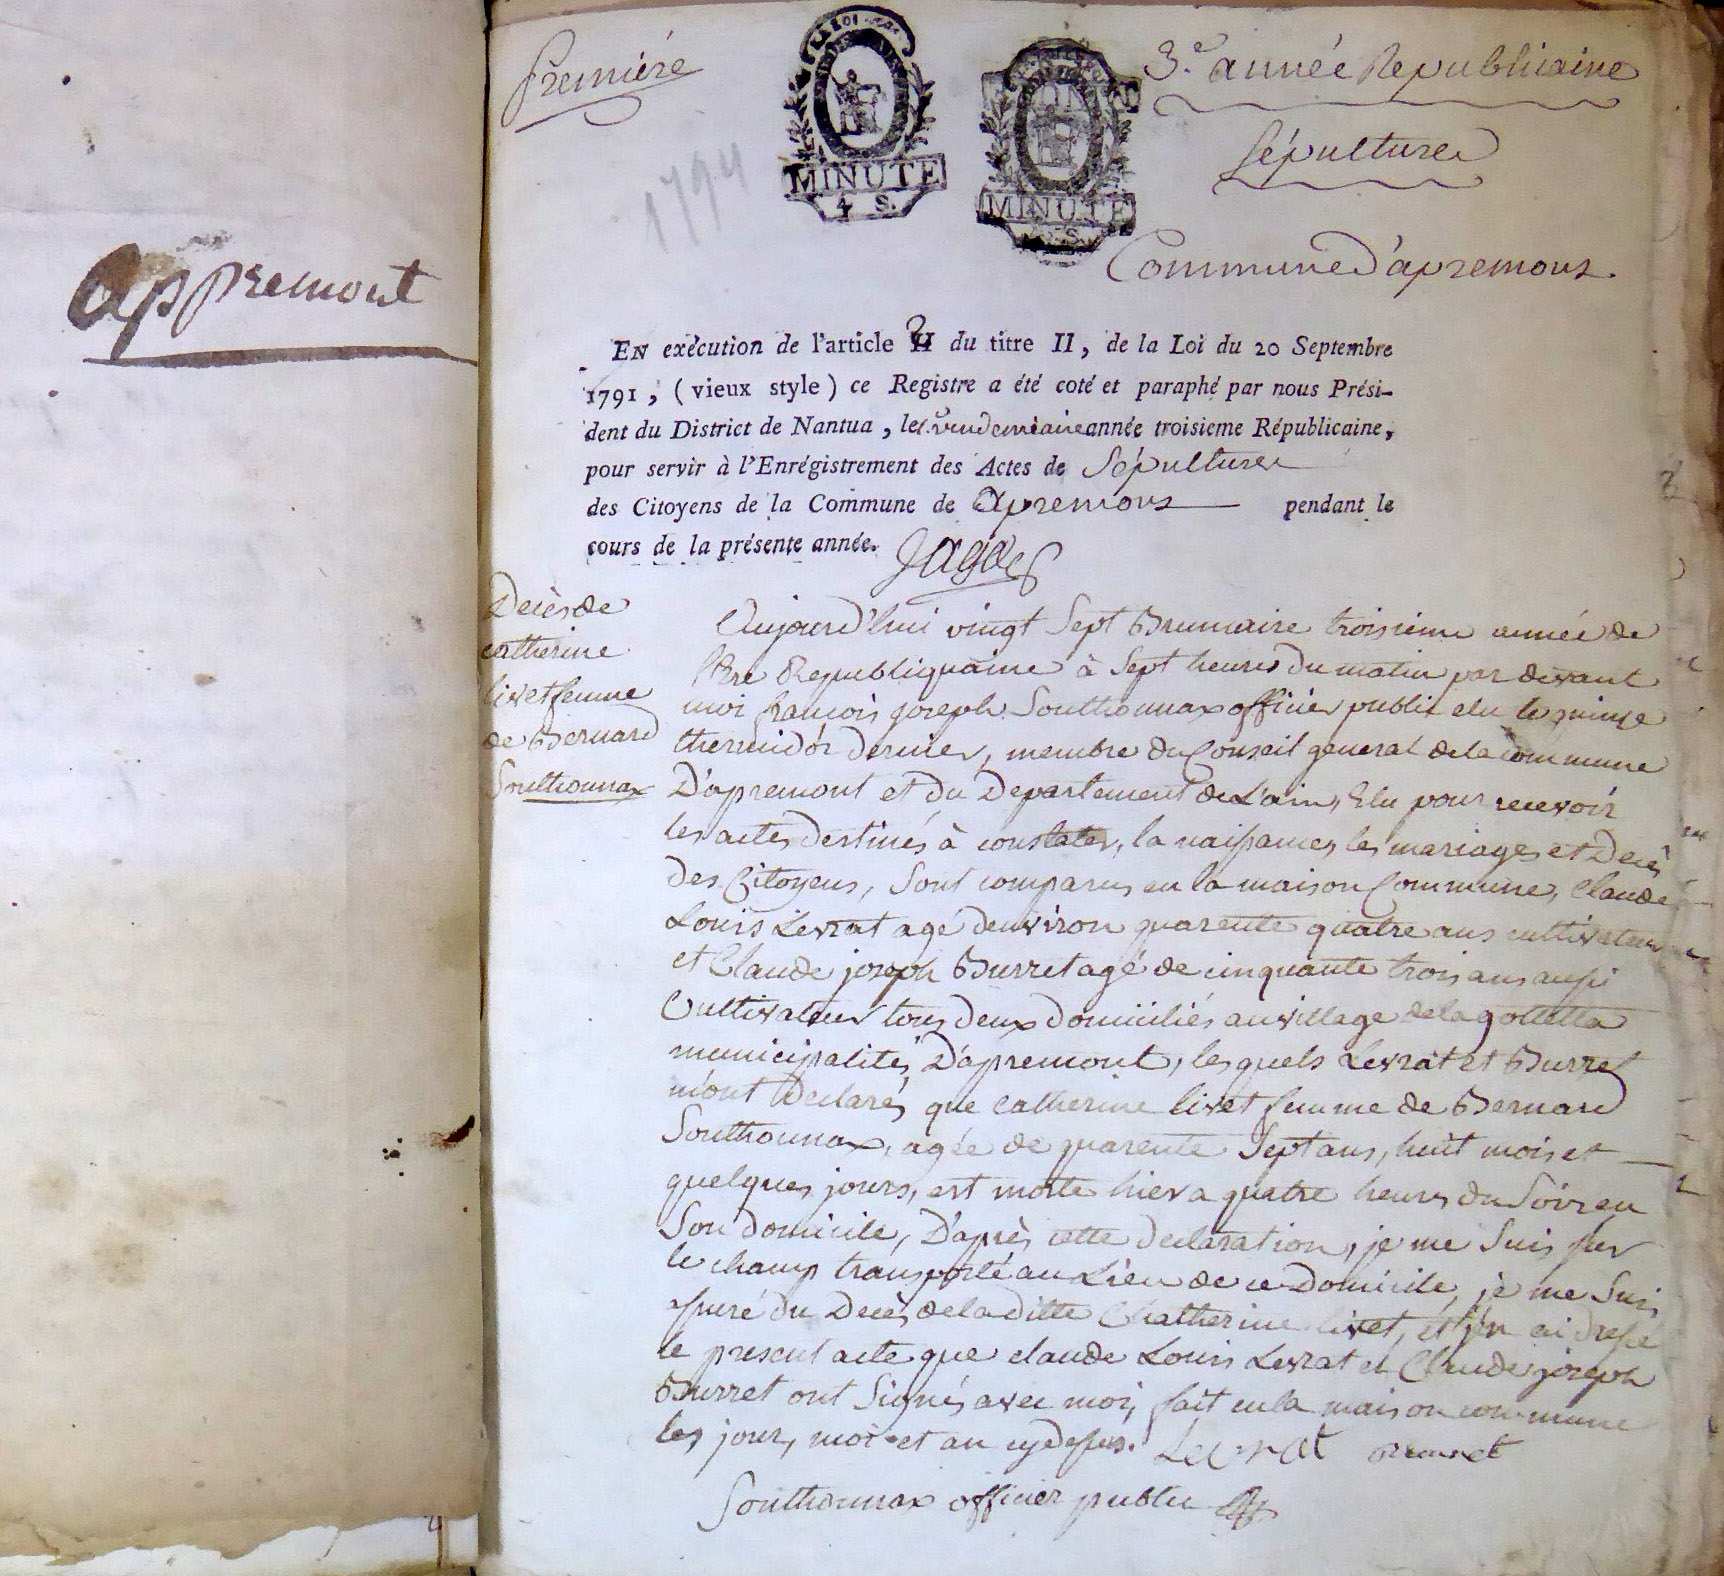 Appremont
Premiére
1794
MINUTE
4 S.
MINUTE
S.
3.e année Republicaine
Sépultures
Commune D'apremont.
EN exécution de l'article 2 du titre II, de la Loi du 20 Septembre
1791, (vieux style) ce Registre a été coté et paraphé par nous Prési-
dent du District de Nantua, le vendemiaire année troisieme Républicaine,
pour servir à l'Enrégistrement des Actes de Sépultures
des Citoyens de la Commune de Apremont pendant le
cours de la présente année.
Decès de
catherine
livet femme
de Bernard
Southonnax
Aujourd'hui vingt Sept Brumaire troisieme année de
l'Ere Republiquaine à Sept heures du matin par devant
moi françois joseph Southonnax officier public elu le quinze
thermidor dernier, membre du Conseil general de la commune
D'apremont et du Departement de L'ain, Elu pour recevoir
les actes destinés à constater, la naissances, les mariages et Decès
des Citoyens, Sont comparus en la maison Commune, Claude
Louis Levrat agé denviron quarente quatre ans cultivateur
et Claude joseph Burret agé de cinquante trois ans aussi
Cultivateur tous deux domiciliés au village de la gottetta
municipalité, D'apremont, les quels Levrat et Burret
m'ont Declarés que catherine livet femme de Bernard
Southonnax, agée de quarente Sept ans, huit mois et
quelques jours, est morte hier a quatre heures du Soir en
Son domicile, D'après cette declaration, je me Suis sur
le champ transporté au Lieu de ce Domicile, je me Suis
assuré du Decès de la ditte Chatherine livet, et j'en ai dressé
le present acte que claude Louis Levrat et Claude joseph
Burret ont Signés avec moi, fait en la maison commune
les jour, mois et an cy dessus. Levrat Burret
Southonnax officier public